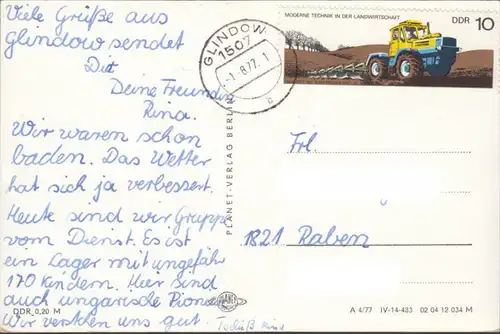 Viele Grüße aus
Glindow sendet
Dir
Deine Freundin
Rina.
Wir waren schon
baden. Das Wetter
hat sich ja verbessert.
Heute sind wir Gruppe
vom Dienst. Es ist
ein Lager mit ungefähr
170 Kindern. Hier sind
auch ungarische Pionie
Wir verstehen uns gut.
DDR 0,20 M
GLINDOW
1507
-1.-8.77.-1
b
MODERNE TECHNIK IN DER LANDWIRTSCHAFT
DDR 10
PLANET-VERLAG BERLIN
PLANET
Frl.
1821 Raben
A 4/77 IV-14-483 02 04 12 034 M